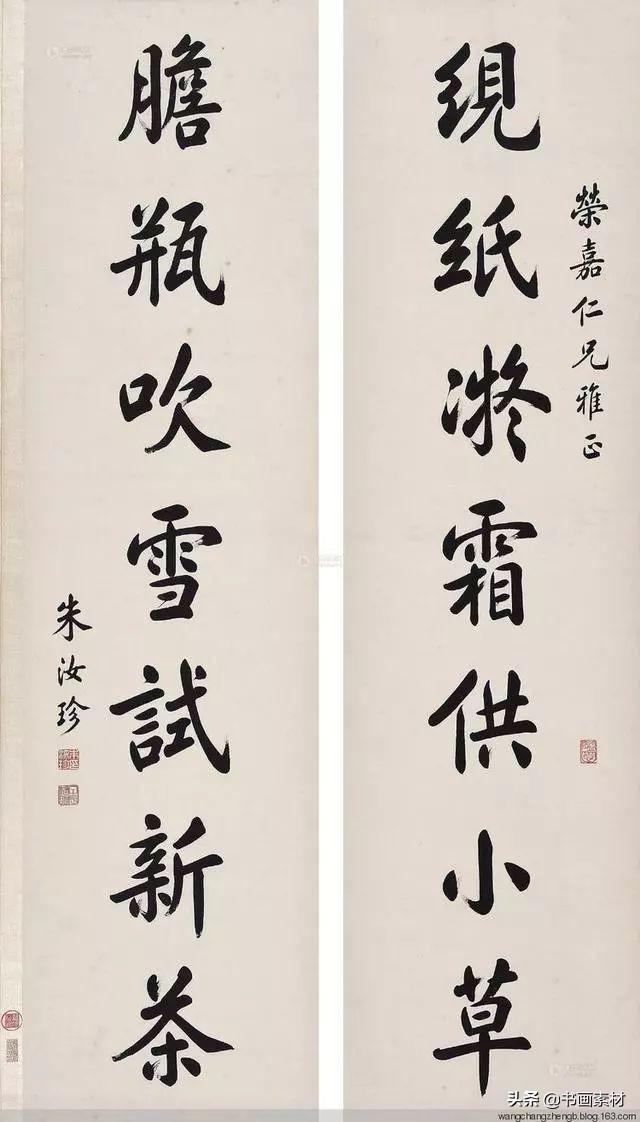 榮嘉仁兄雅正
絸紙凝霜供小草
膽瓶吹雪試新茶
朱汝珍
头条 @书画素材
wangchangzhengb.blog.163.com